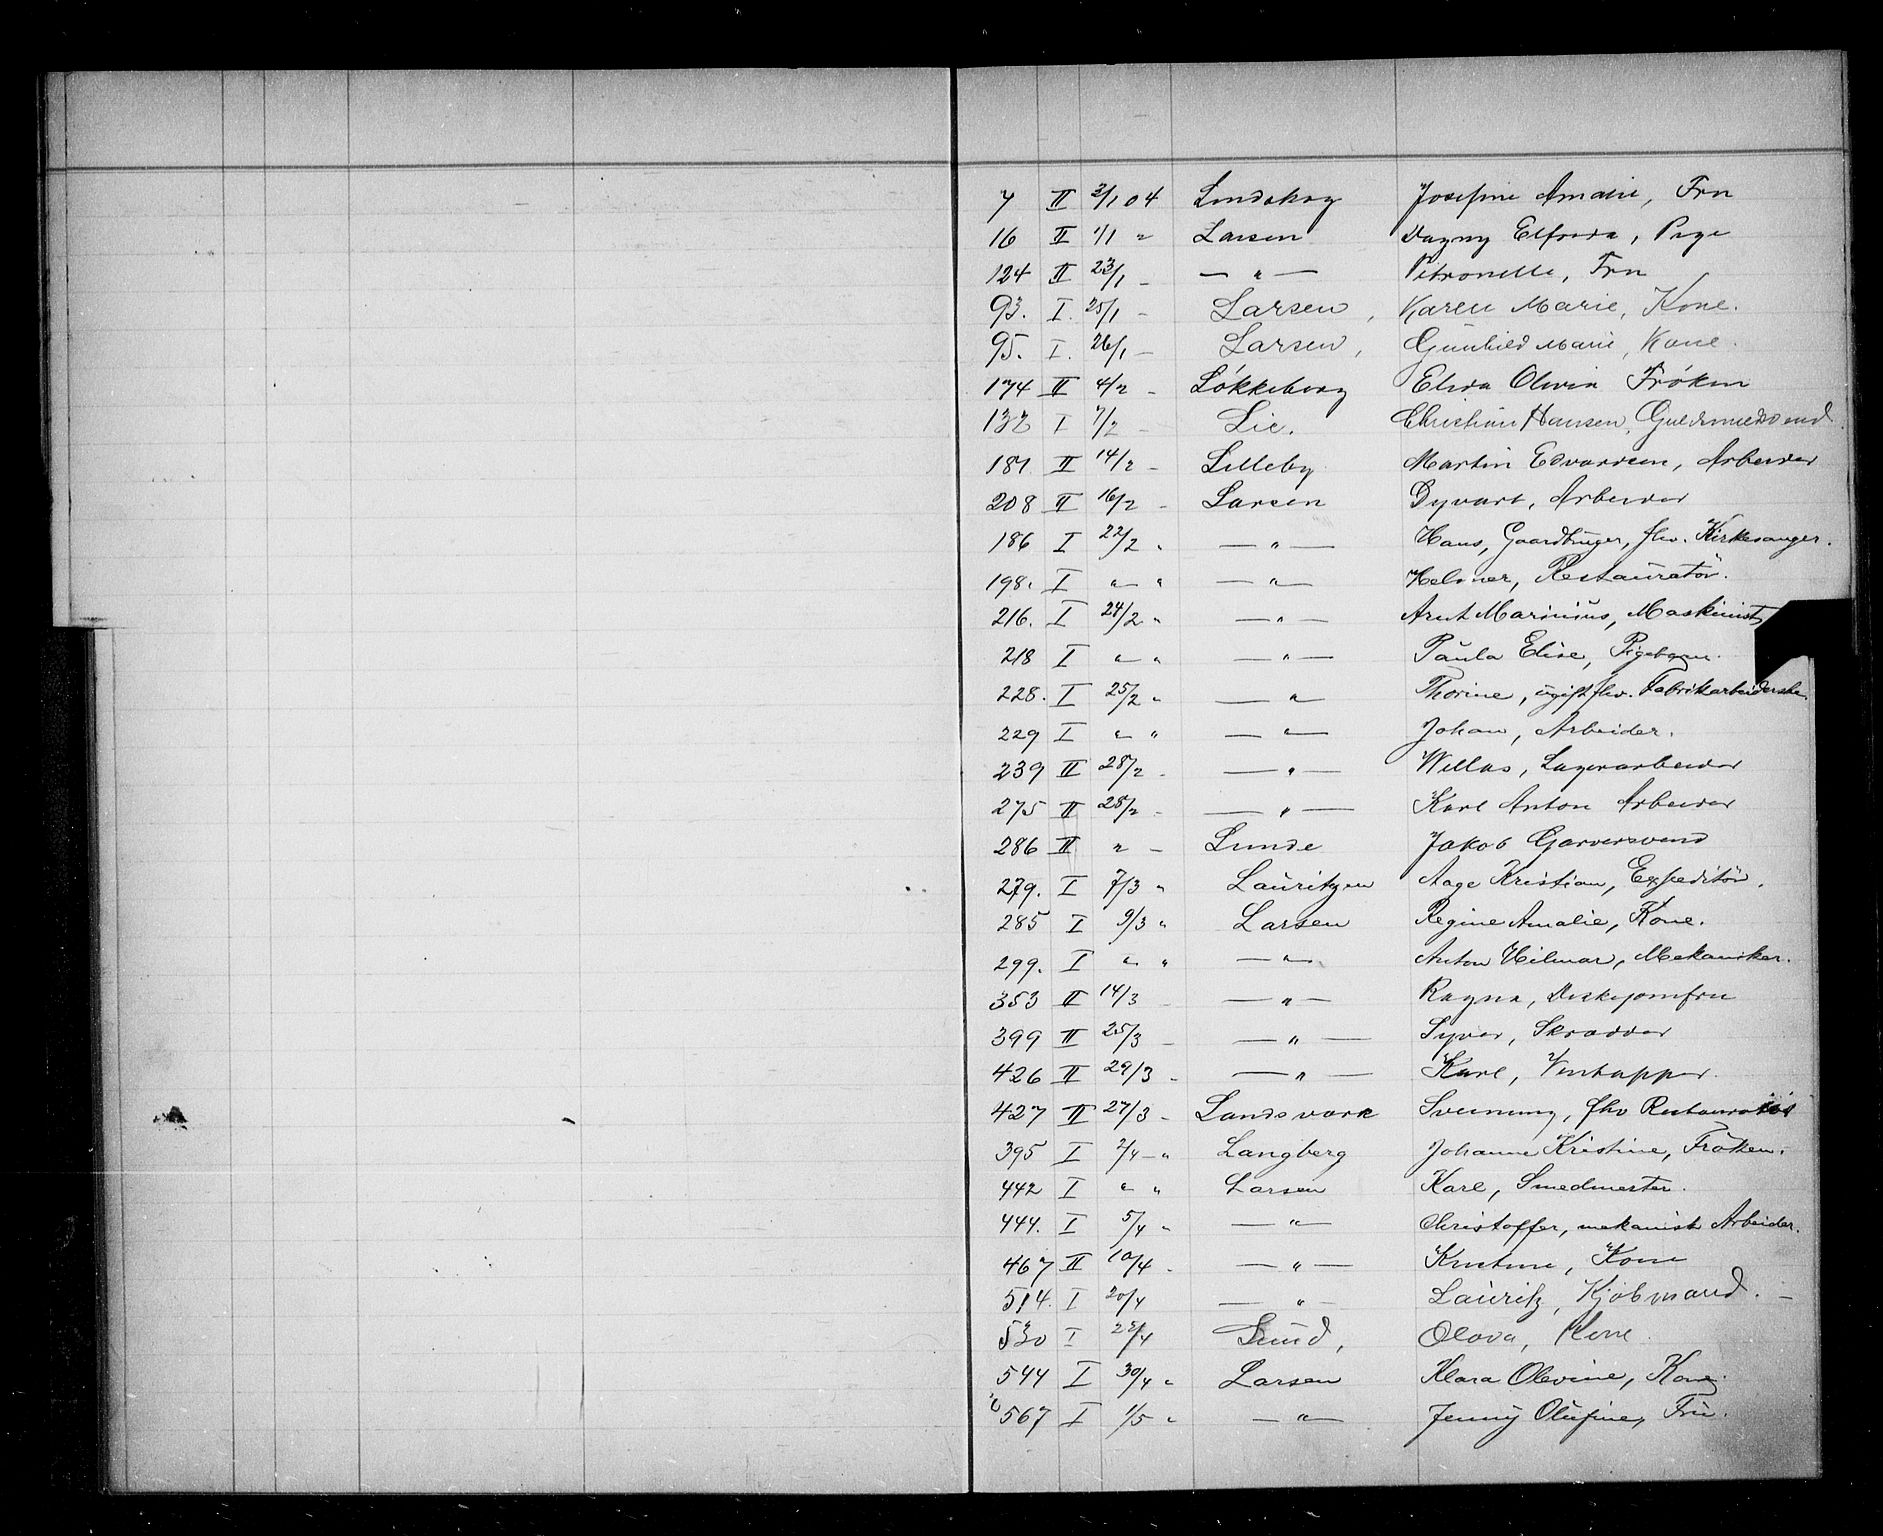 7 II 2/1 04 Lindskog Josefine Amalie, Fru
16 II 1/1 " Larsen Dagny Elfrida, Pige
124 II 23/1 - — " — Petronelle, Fru
93. I. 25/1 - Larsen, Karen Marie, Kone.
95. I. 26/1 - Larsen, Gunhild Marie, Kone.
174 II 4/2 - Løkkeborg Elida Olivia Frøken
132 I 7/2 - Lie. Christian Hansen, Guldsmedsvend.
181 II 14/2 - Lilleby Martin Edvardsen, Arbeider
208 II 16/2 - Larsen Dyvart, Arbeider
186 I 22/2 " — " — Hans, Gaardbruger, fhv. Kirkesanger.
198. I " " — " — Helmer, Restauratör.
216. I 24/2 " — " — Arnt Marinius, Maskinist
218 I " " — " — Paula Elise, Pigebarn.
228. I 25/2 " — " — Thorine, ugift fhv. Fabrikarbeiderske.
229 I " " — " — Johan, Arbeider.
239 II 28/2 - — " — Willas, Lagerarbeider
275 II 28/2 - — " — Karl Anton Arbeider
286 II " - Lunde Jakob Garversvend
279. I 7/3 " Lauritzen Aage Kristian, Expeditör.
285 I 9/3 " Larsen Regine Amalie, Kone.
299. I " " — " — Anton Hilmar, Mekaniker.
353 II 14/3 - — " — Ragna, Diskejomfru
399 II 25/3 - — " — Syver, Skrædder
426 II 29/3 - — " — Karl, Vintapper.
427 II 27/3 - Landsvark Sveinung, fhv Restauratør
395 I 2/4 - " Langberg Johanne Kristine, Fröken.
442 I " " Larsen Karl, Smedmester.
444. I 5/4 " — " — Christoffer, mekanisk Arbeider.
467 II 10/4 - — " — Kristine, Kone
514. I 20/4 — " — Lauritz, Kjøbmand. -
530 I 25/4 Lund, Olava, Kone.
544 I 30/4 " Larsen Klara Olevine, Kone.
567 I 1/5 " — " — Jenny Olufine, Fru.